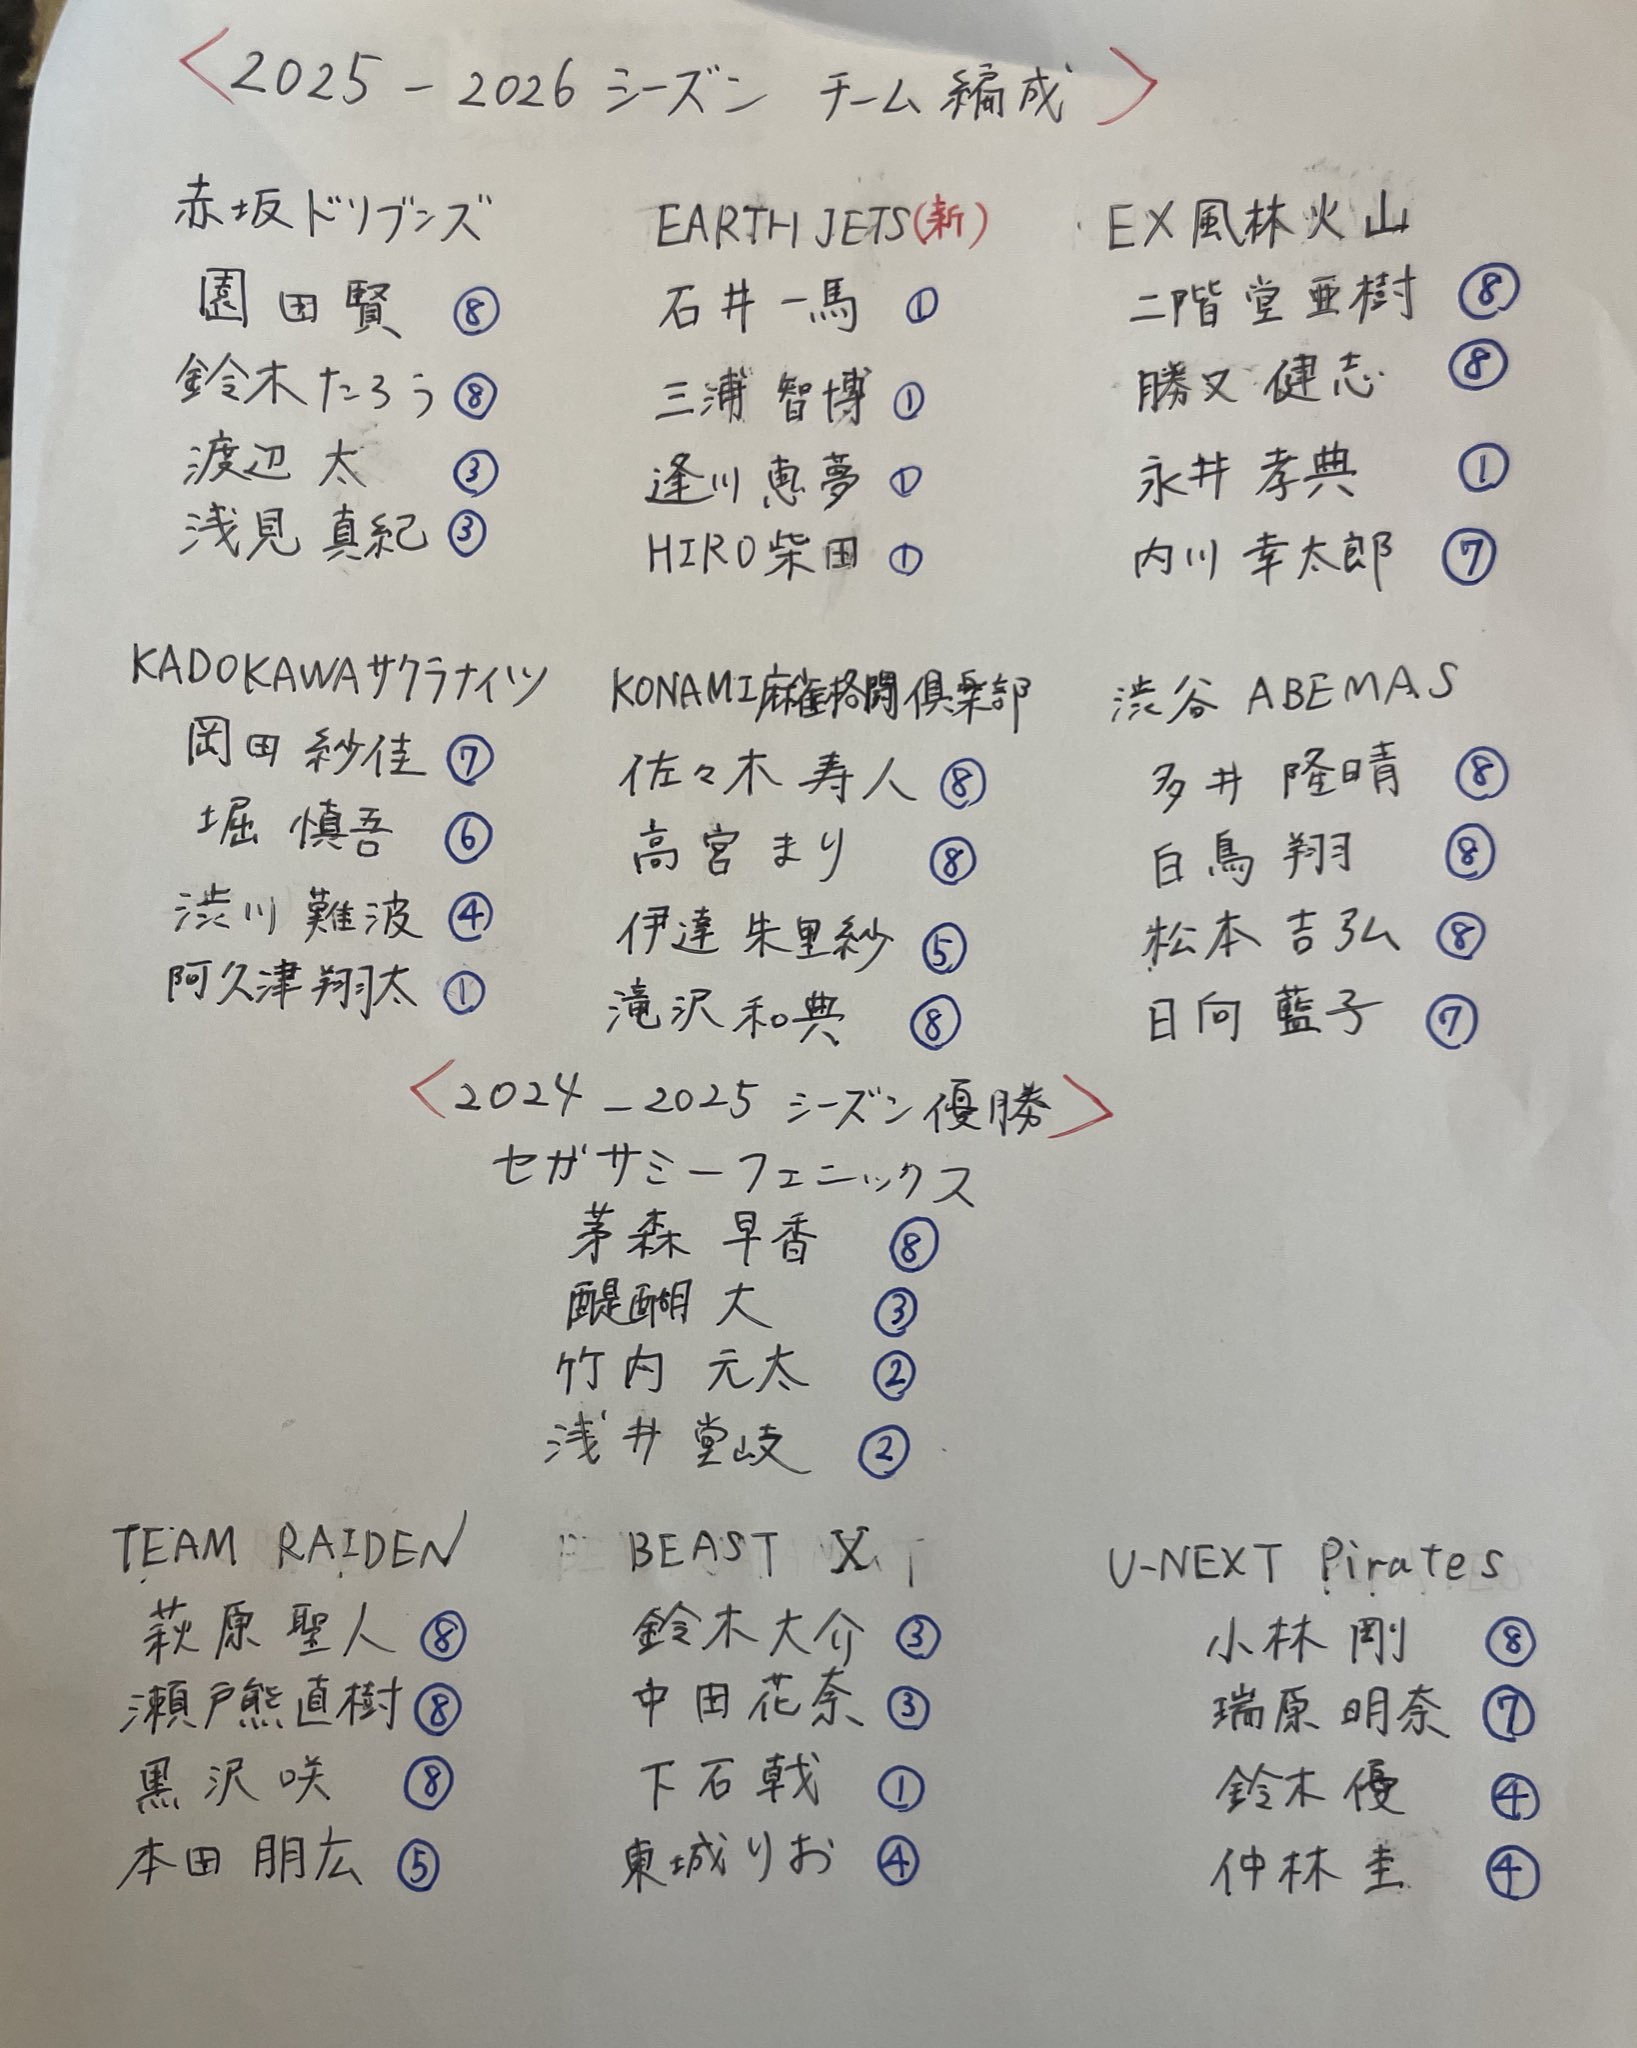 <2025-2026シーズン チーム編成>
赤坂ドリブンズ
園田賢 ⑧
鈴木たろう ⑧
渡辺 太 ③
浅見 真紀 ③
EARTH JETS(新)
石井一馬 ①
三浦 智博 ①
逢川 恵夢 ①
HIRO柴田 ①
EX風林火山
二階堂亜樹 ⑧
勝又 健志 ⑧
永井 孝典 ①
内川 幸太郎 ⑦
KADOKAWAサクラナイツ
岡田 紗佳 ⑦
堀 慎吾 ⑥
渋川 難波 ④
阿久津翔太 ①
KONAMI麻雀格闘倶楽部
佐々木 寿人 ⑧
高宮 まり ⑧
伊達 朱里紗 ⑤
滝沢 和典 ⑧
渋谷 ABEMAS
多井 隆晴 ⑧
白鳥 翔 ⑧
松本 吉弘 ⑧
日向 藍子 ⑦
<2024-2025 シーズン優勝>
セガサミーフェニックス
茅森 早香 ⑧
醍醐 大 ③
竹内 元太 ②
浅井 堂岐 ②
TEAM RAIDEN
萩原 聖人 ⑧
瀬戸熊直樹 ⑧
黒沢 咲 ⑧
本田 朋広 ⑤
BEAST X
鈴木大介 ③
中田花奈 ③
下石戟 ①
東城りお ④
U-NEXT Pirates
小林 剛 ⑧
瑞原 明奈 ⑦
鈴木 優 ④
仲林 圭 ④